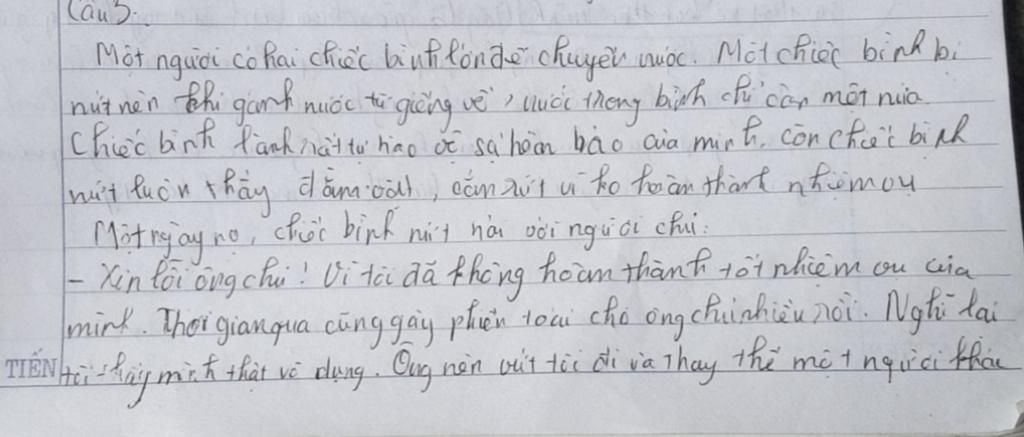 Câu 5.
Một người có hai chiếc bình lớn để chuyển nước. Một chiếc bình bị
nứt nên khi gánh nước từ giếng về, nước trong bình chỉ còn một nửa.
Chiếc bình lành rất tự hào về sự hoàn bảo của mình, còn chiếc bình
nứt luôn thấy dằn vặt, cắn rứt vì ko hoàn thành nhiệm vụ
Một ngày nọ, chiếc bình nứt nói với người chủ:
- Xin lỗi ông chủ! Vì tôi đã không hoàn thành tốt nhiệm vụ của
mình. Thời gian qua cũng gây phiền toái cho ông chủ nhiều rồi. Nghĩ lại
TIẾN tôi thấy mình thật vô dụng. Ông nên vứt tôi đi và thay thế một người khác